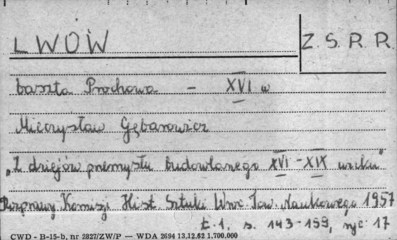 LWÓW
Z. S. R. R.
baszta Prochowa - XVI w
Mieczysław Gębarowicz
"Z dziejów przemysłu budowlanego XVI-XIX wieku"
Rozprawy Komisji Hist Sztuki Wroc Tow. Naukowego 1957
t. 1. s. 143-159, ryc 17
CWD - B-15-b, nr 2827/ZW/P — WDA 2694 13.12.62 1.700.000